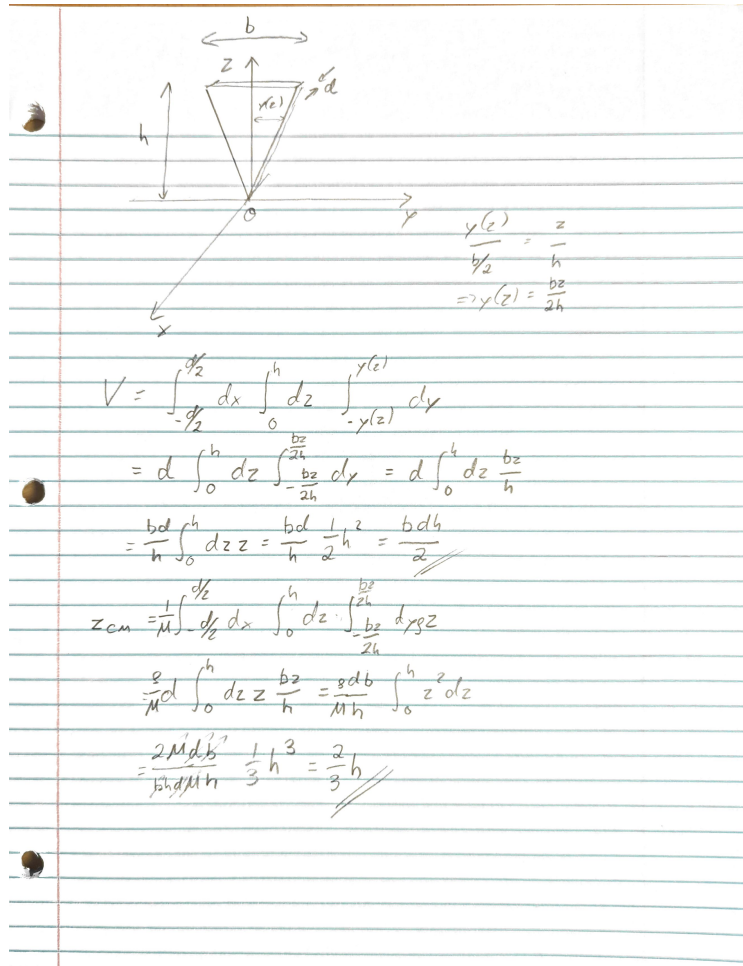 b
z
d
y(z)
h
O
y
x
y(z)/(b/2) = z/h
=> y(z) = bz/2h
V = ∫_{-d/2}^{d/2} dx ∫_0^h dz ∫_{-y(z)}^{y(z)} dy
= d ∫_0^h dz ∫_{-bz/2h}^{bz/2h} dy = d ∫_0^h dz bz/h
= bd/h ∫_0^h dz z = bd/h 1/2 h² = bdh/2
z_CM = 1/M ∫_{-d/2}^{d/2} dx ∫_0^h dz ∫_{-bz/2h}^{bz/2h} dy ρ z
= ρ/M d ∫_0^h dz z bz/h = ρdb/Mh ∫_0^h z² dz
= 2Mdb/bhdMh 1/3 h³ = 2/3 h